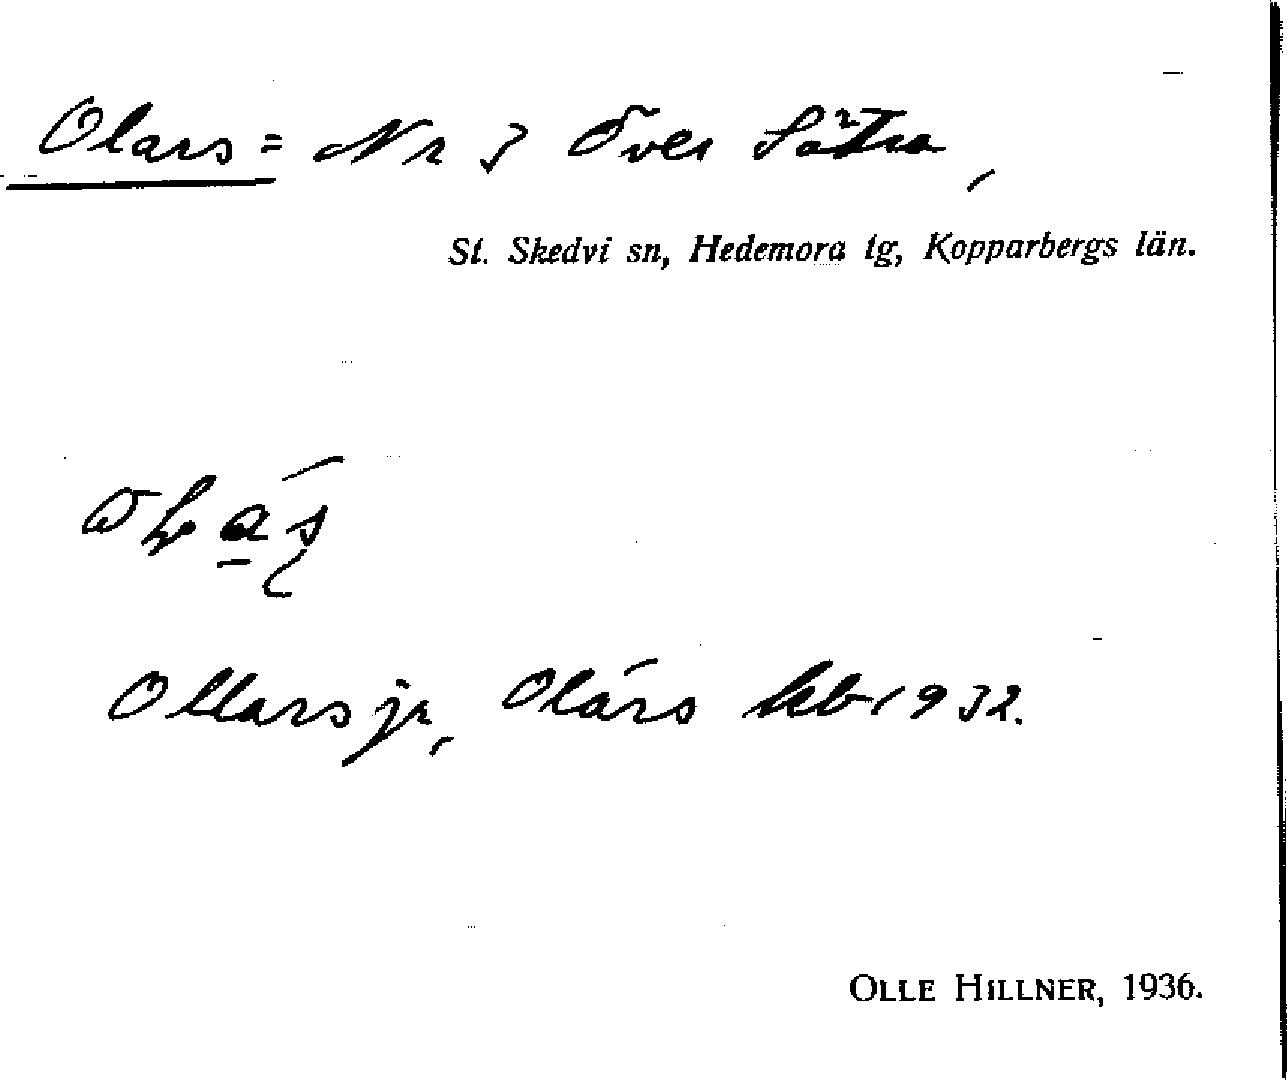 Olars = Nr 3 Över Sätra,
St. Skedvi sn, Hedemora tg, Kopparbergs län.
Ollars jr, Olárs kb 1932.
OLLE HILLNER, 1936.